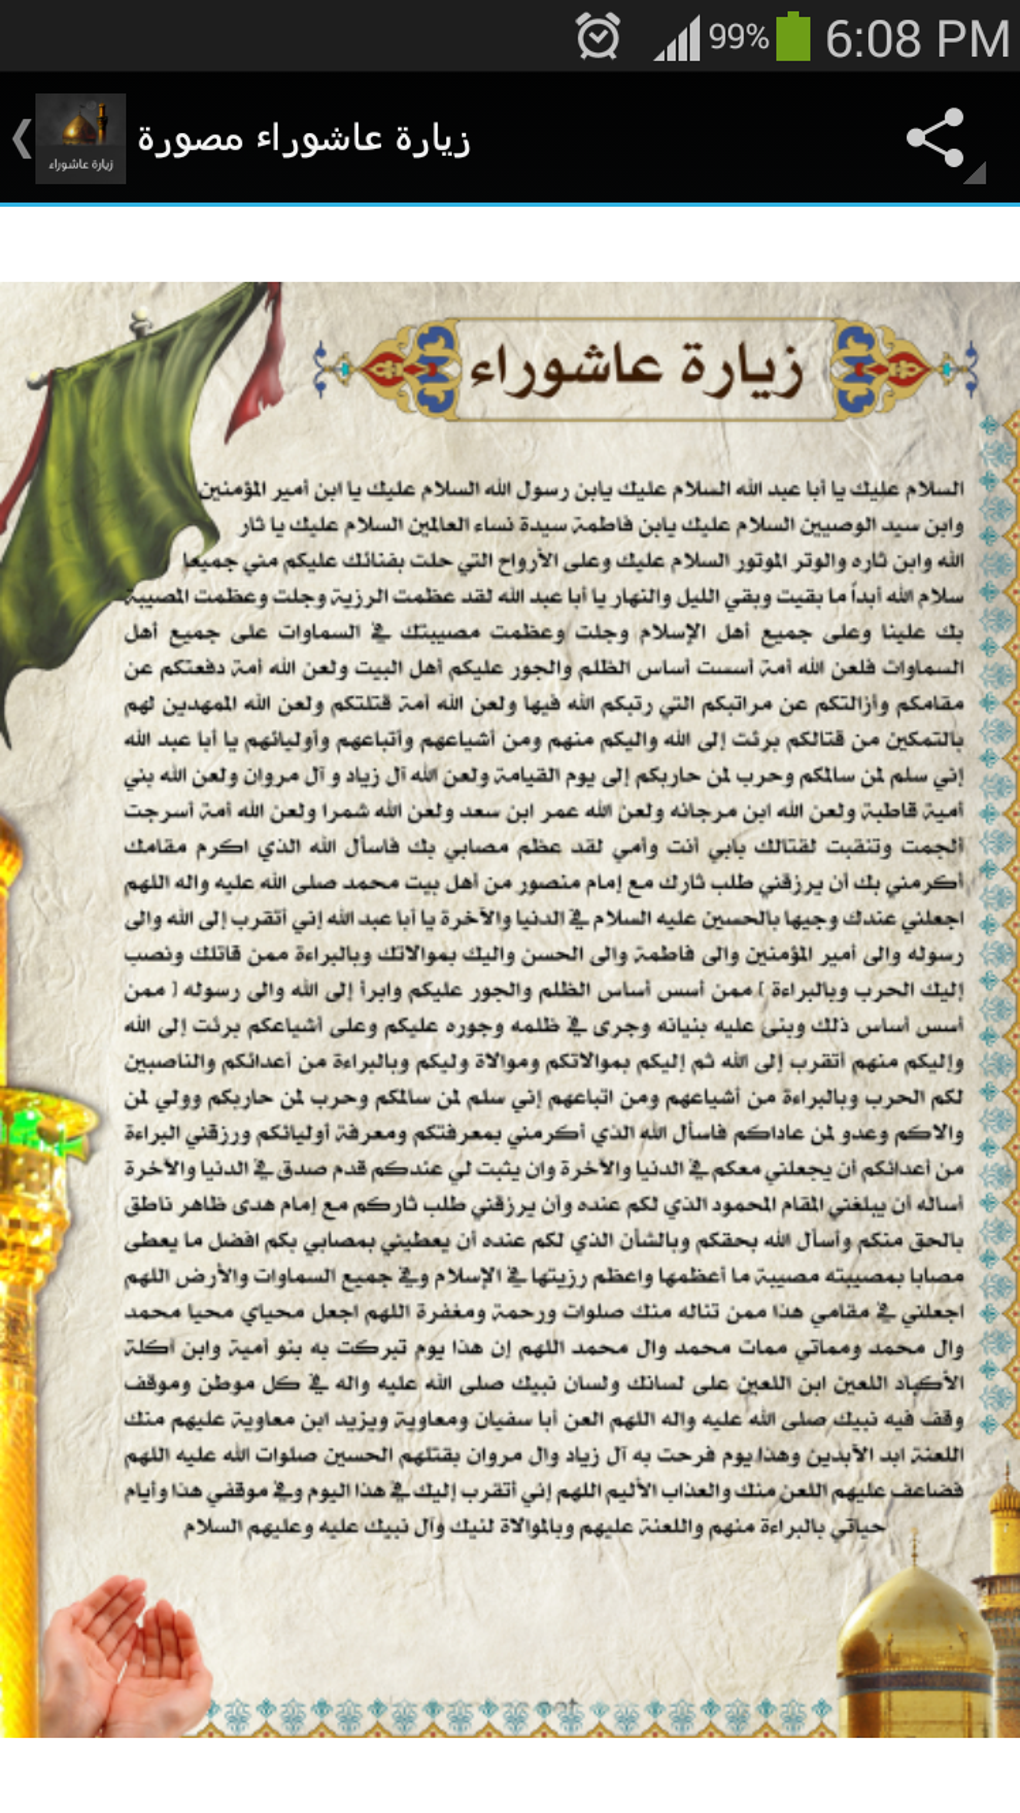 99% 6:08 PM
زيارة عاشوراء مصورة
زيارة عاشوراء
زيارة عاشوراء
السلام عليك يا أبا عبد الله السلام عليك يابن رسول الله السلام عليك يا ابن أمير المؤمنين
وابن سيد الوصيين السلام عليك يابن فاطمة سيدة نساء العالمين السلام عليك يا ثار
الله وابن ثاره والوتر الموتور السلام عليك وعلى الأرواح التي حلت بفنائك عليكم مني جميعا
سلام الله أبداً ما بقيت وبقي الليل والنهار يا أبا عبد الله لقد عظمت الرزية وجلت وعظمت المصيبة
بك علينا وعلى جميع أهل الإسلام وجلت وعظمت مصيبتك في السماوات على جميع أهل
السماوات فلعن الله أمة أسست أساس الظلم والجور عليكم أهل البيت ولعن الله أمة دفعتكم عن
مقامكم وأزالتكم عن مراتبكم التي رتبكم الله فيها ولعن الله أمة قتلتكم ولعن الله الممهدين لهم
بالتمكين من قتالكم برئت إلى الله واليكم منهم ومن أشياعهم وأتباعهم وأوليائهم يا أبا عبد الله
إني سلم لمن سالمكم وحرب لمن حاربكم إلى يوم القيامة ولعن الله آل زياد و آل مروان ولعن الله بني
أمية قاطبة ولعن الله ابن مرجانه ولعن الله عمر ابن سعد ولعن الله شمرا ولعن الله أمة أسرجت
ألجمت وتنقبت لقتالك بابي أنت وأمي لقد عظم مصابي بك فاسأل الله الذي اكرم مقامك
أكرمني بك أن يرزقني طلب ثارك مع إمام منصور من أهل بيت محمد صلى الله عليه واله اللهم
اجعلني عندك وجيها بالحسين عليه السلام في الدنيا والآخرة يا أبا عبد الله إني أتقرب إلى الله والى
رسوله والى أمير المؤمنين والى فاطمة والى الحسن واليك بموالاتك وبالبراءة ممن قاتلك ونصب
إليك الحرب وبالبراءة ) ممن أسس أساس الظلم والجور عليكم وابرأ إلى الله والى رسوله ( ممن
أسس أساس ذلك وبنى عليه بنيانه وجرى في ظلمه وجوره عليكم وعلى أشياعكم برئت إلى الله
وإليكم منهم أتقرب إلى الله ثم إليكم بموالاتكم وموالاة وليكم وبالبراءة من أعدائكم والناصبين
لكم الحرب وبالبراءة من أشياعهم ومن اتباعهم إني سلم لمن سالمكم وحرب لمن حاربكم وولي لمن
والاكم وعدو لمن عاداكم فاسأل الله الذي أكرمني بمعرفتكم ومعرفة أوليائكم ورزقني البراءة
من أعدائكم أن يجعلني معكم في الدنيا والآخرة وان يثبت لي عندكم قدم صدق في الدنيا والآخرة
أساله أن يبلغني المقام المحمود الذي لكم عنده وأن يرزقني طلب ثاركم مع إمام هدى ظاهر ناطق
بالحق منكم وأسأل الله بحقكم وبالشأن الذي لكم عنده أن يعطيني بمصابي بكم افضل ما يعطى
مصابا بمصيبته مصيبة ما أعظمها واعظم رزيتها في الإسلام وفي جميع السماوات والأرض اللهم
اجعلني في مقامي هذا ممن تناله منك صلوات ورحمة ومغفرة اللهم اجعل محياي محيا محمد
وال محمد ومماتي ممات محمد وال محمد اللهم إن هذا يوم تبركت به بنو أمية وابن آكلة
الأكباد اللعين ابن اللعين على لسانك ولسان نبيك صلى الله عليه واله في كل موطن وموقف
وقف فيه نبيك صلى الله عليه واله اللهم العن أبا سفيان ومعاوية ويزيد ابن معاوية عليهم منك
اللعنة ابد الآبدين وهذا يوم فرحت به آل زياد وال مروان بقتلهم الحسين صلوات الله عليه اللهم
فضاعف عليهم اللعن منك والعذاب الأليم اللهم إني أتقرب إليك في هذا اليوم وفي موقفي هذا وأيام
حياتي بالبراءة منهم واللعنة عليهم وبالموالاة لنبيك وآل نبيك عليه وعليهم السلام